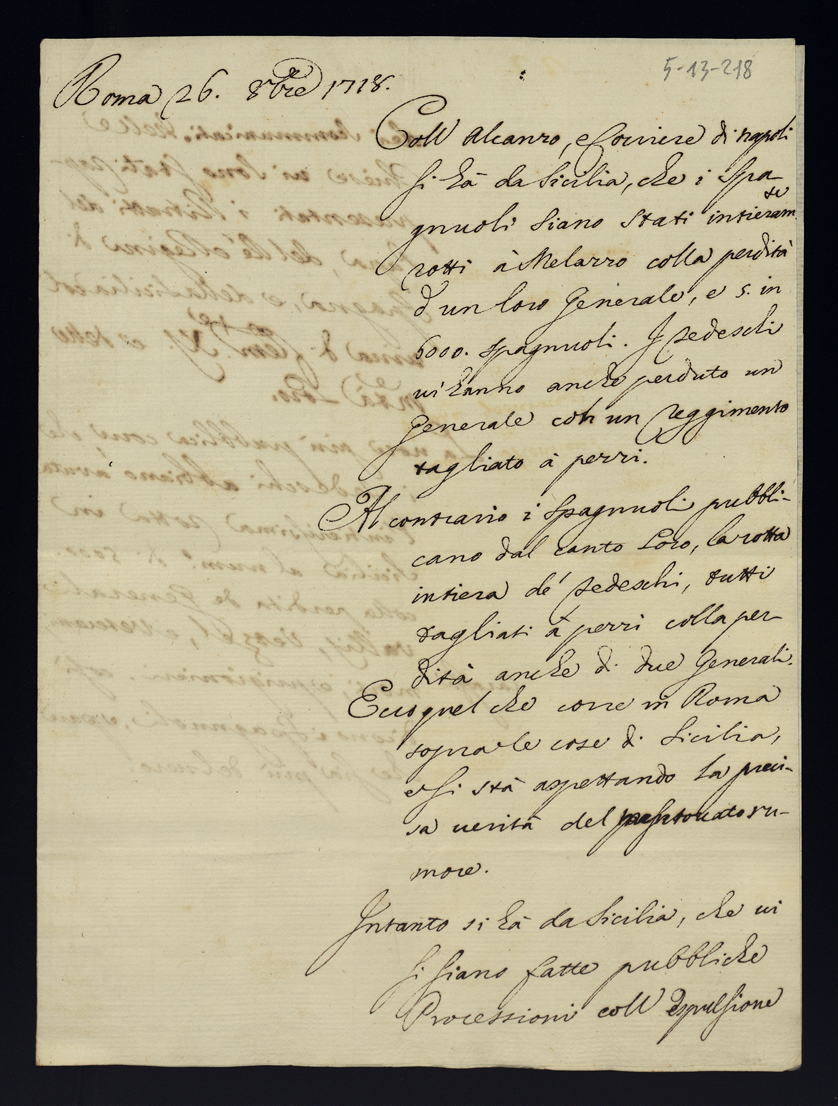 5-13-218
Roma 26. 8bre 1718.
Coll Alcanzo, e Corriere di napoli
si hà da Sicilia, che i Spa-
gnuoli siano stati intieramte
rotti à Melazzo colla perdità
d'un loro Generale, e 5. in
6000. Spagnuoli. I Tedeschi
ui hanno anche perduto un
Generale con un reggimento
tagliato à pezzi.
Al contrario i Spagnuoli pubbli-
cano dal canto Loro, la rotta
intiera de' Tedeschi, tutti
tagliati à pezzi colla per-
dità anche di due Generali.
Ecco quel che corre in Roma
sopra le cose di Sicilia,
e si stà aspettando la preci-
sa uerità del ru-
more.
Intanto si hà da Sicilia, che ui
si siano fatte pubbliche
Processioni coll Espulsione